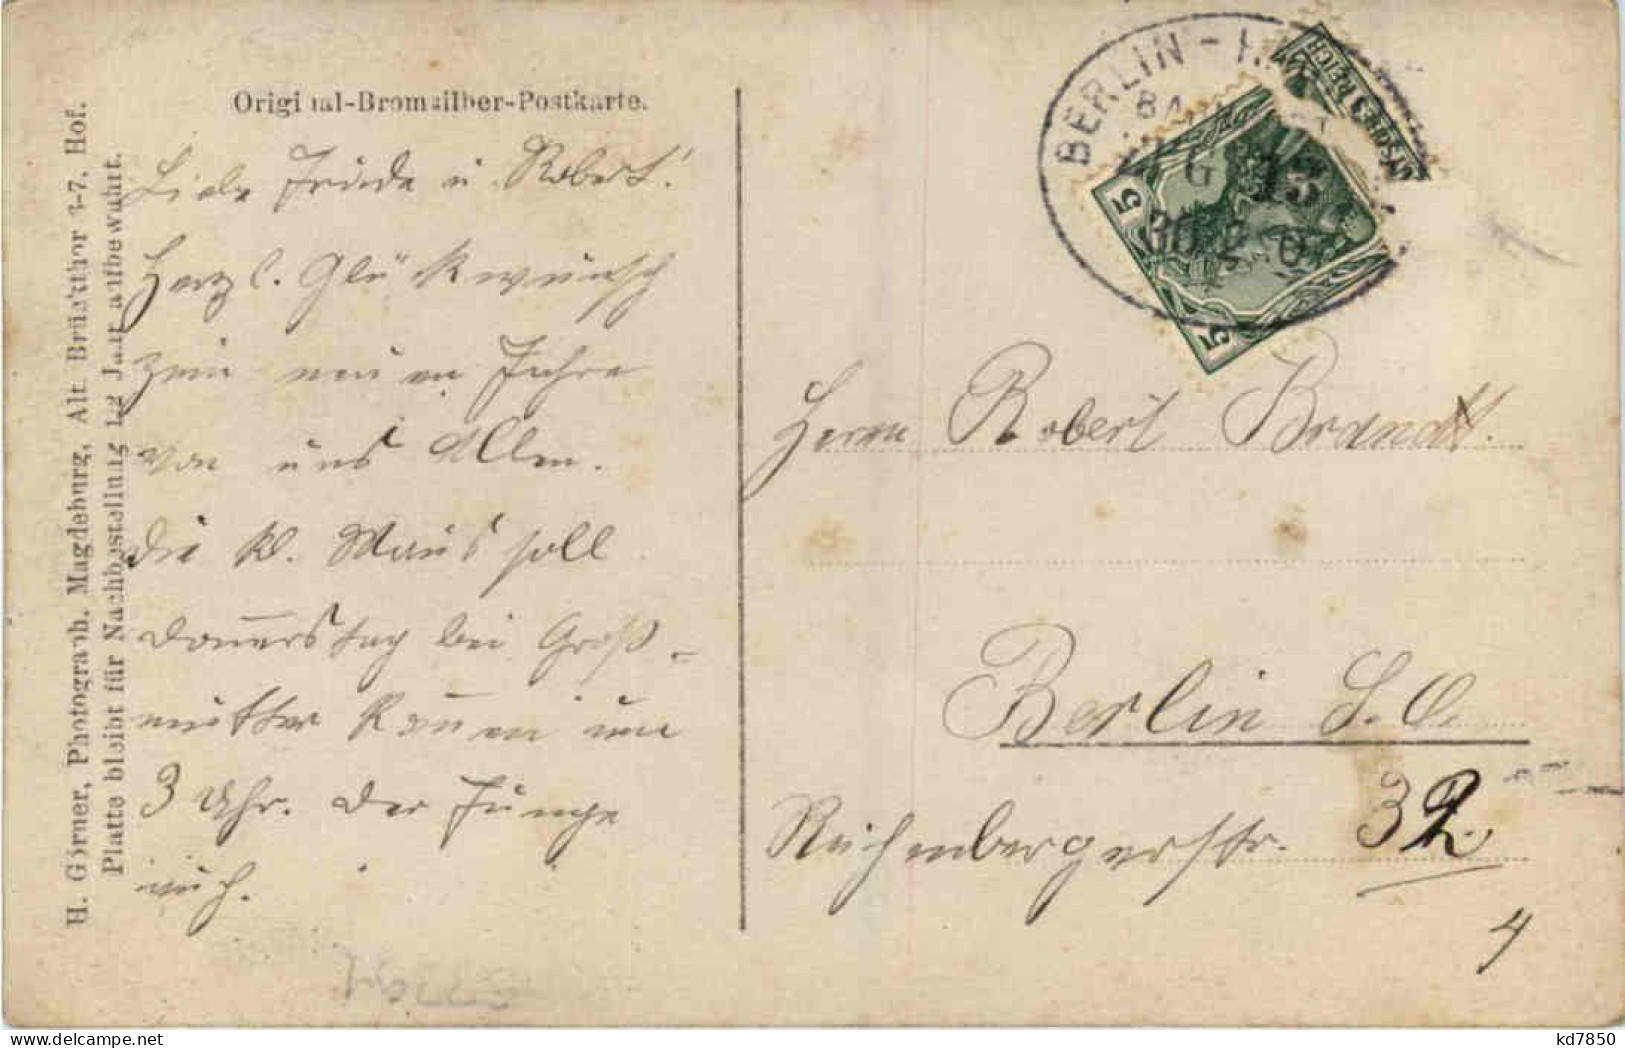 Original-Bromsilber-Postkarte.
H. Görner, Photograph, Magdeburg, Alt. Brückthor 1-7, Hof.
Platte bleibt für Nachbestellung 1/2 Jahr aufbewahrt.
Liebe Frieda u. Robert!
Herzl. Glückwünsch
zum neuen Jahre
von uns Allen.
Die kl. Maus soll
Donnerstag bei Groß-
mutter kommen um
3 Uhr. Der Junge
auch.
BERLIN - H
BA
ZUG 13
30 2 0
DEUTSCHES REICH
5
5
Herrn Robert Brandt.
Berlin S.O.
Reichenbergerstr. 32
4
kd7850